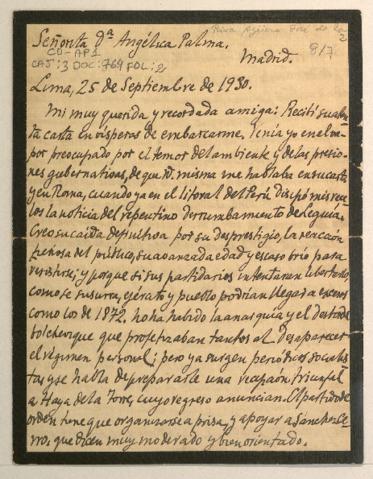 Riva Agüero José de la
2
Señorita Dª Angélica Palma.
CO-AP1
Madrid.
817
CAJ: 3 DOC: 769 FOL: 2
Lima, 25 de Septiembre de 1930.
Mi muy querida y recordada amiga: Recibí su aten-
ta carta en vísperas de embarcarme. Venía yo en el va-
por preocupado por el temor del ambiente y de las presio-
nes gubernativas, de que Vd. misma me hablaba en su carta
y en Roma, cuando ya en el litoral del Perú disipó mis rece-
los la noticia del repentino derrumbamiento de Leguía.
Creo su caída definitiva por su desprestigio, la reacción
penosa del público, su avanzada edad y escaso brío para
revivirse; y porque si sus partidarios intentaran libertarlo,
como se susurra, ejército y pueblo podrían llegar a excesos
como los de 1872. No ha habido la anarquía y el desborde
bolchevique que profetizaban tantos al desaparecer
el régimen personal; pero ya surgen periódicos socialis-
tas y se habla de prepararle una recepción triunfal
a Haya de la Torre, cuyo regreso anuncian. El partido de
orden tiene que organizarse a prisa, y apoyar a Sánchez Ce-
rro, que dicen muy moderado y bien orientado.